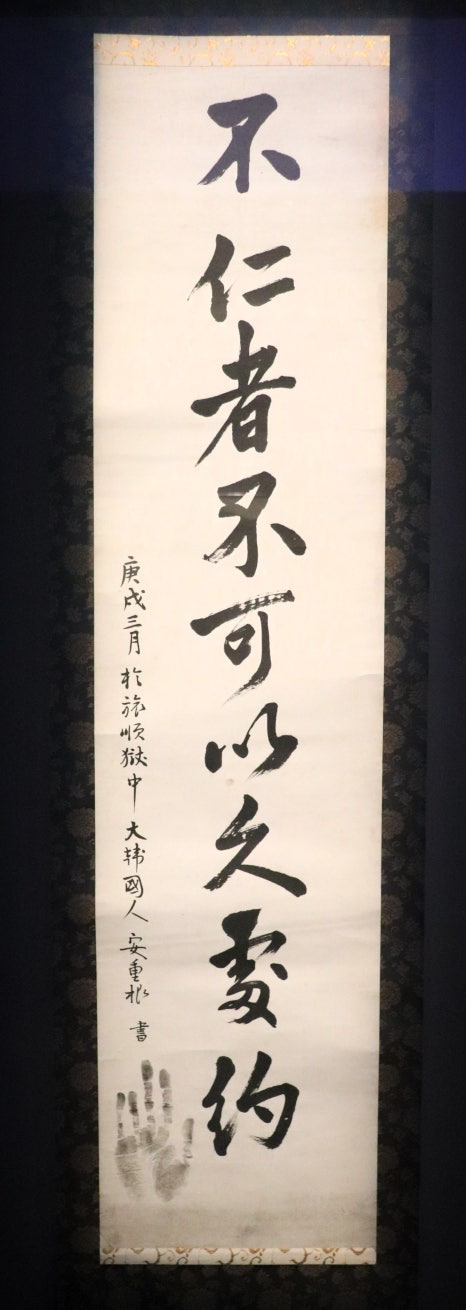 不仁者不可以久處約
庚戌三月 於旅順獄中 大韓國人 安重根 書